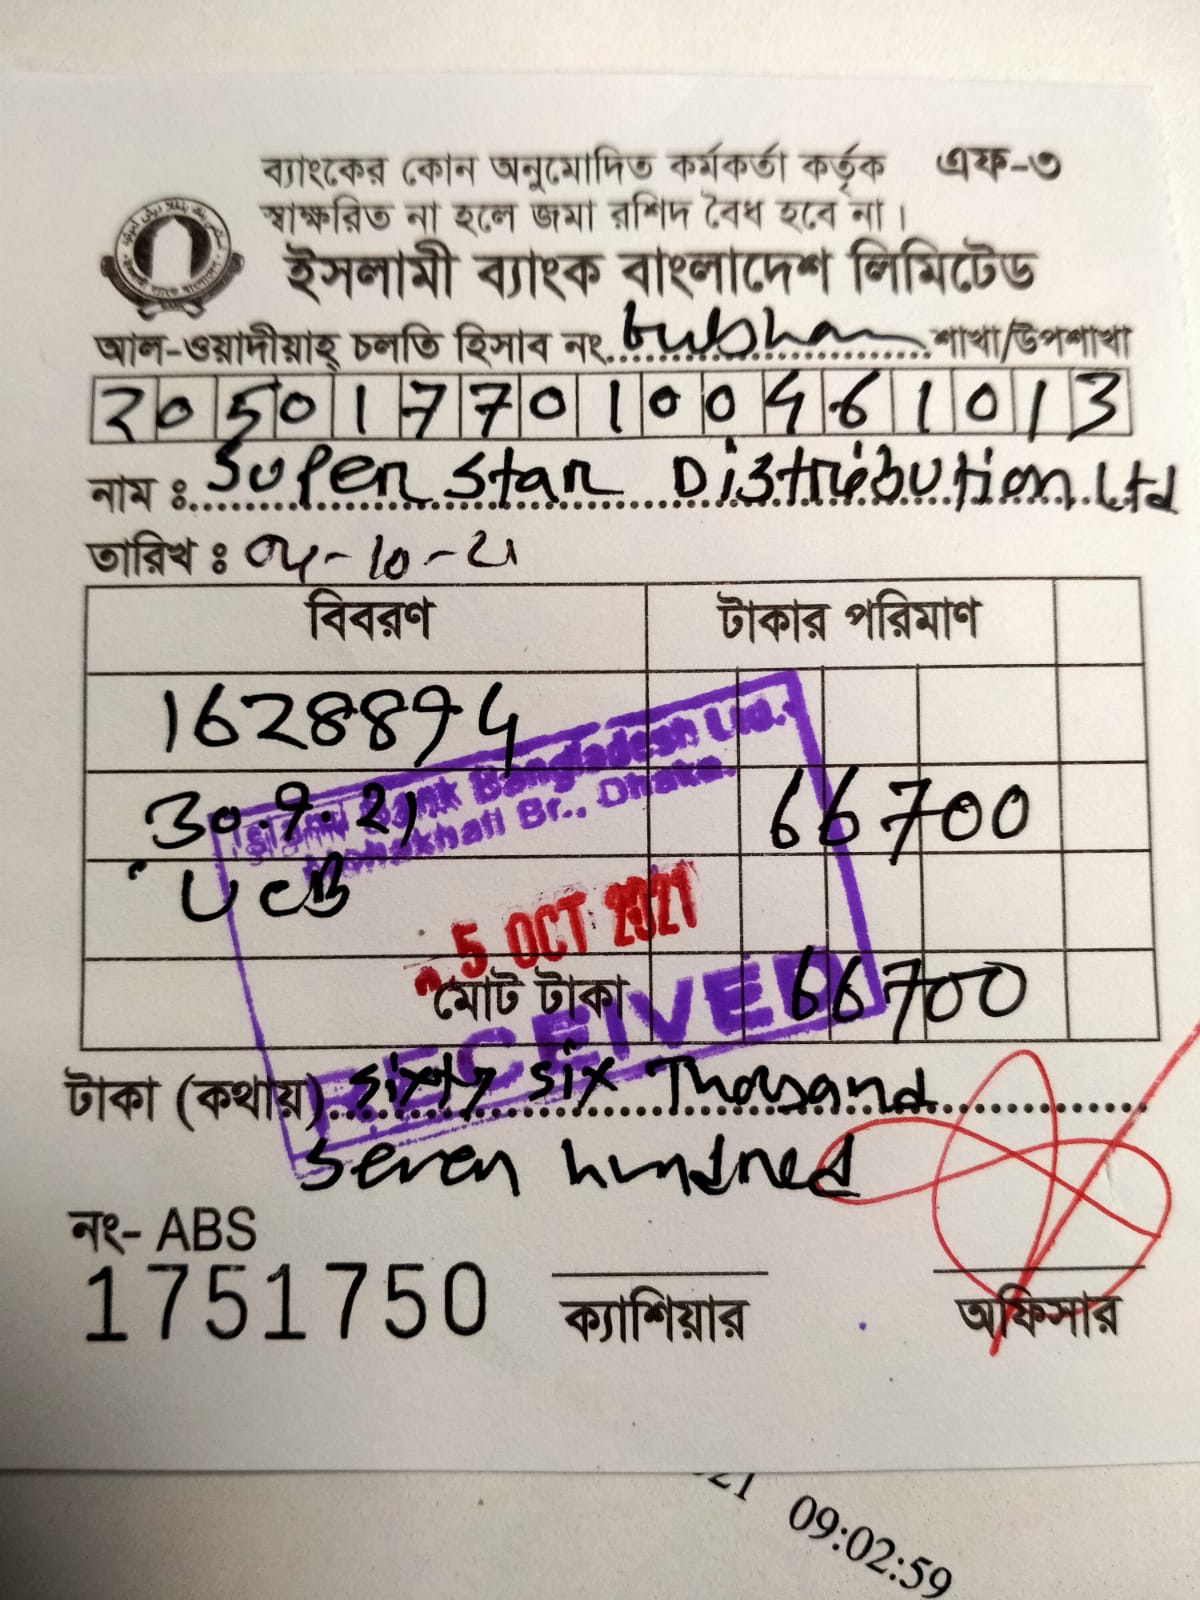 ব্যাংকের কোন অনুমোদিত কর্মকর্তা কর্তৃক এফ-৩
স্বাক্ষরিত না হলে জমা রশিদ বৈধ হবে না।
ইসলামী ব্যাংক বাংলাদেশ লিমিটেড
আল-ওয়াদীয়াহ্ চলতি হিসাব নং. Gulshan শাখা/উপশাখা
20501770100461013
নাম : Super Star Distribution Ltd
তারিখ : 04-10-21
বিবরণ টাকার পরিমাণ
1628894
Islami Bank Bangladesh Ltd.
Mohakhali Br., Dhaka.
30.9.21 66700
UCB
5 OCT 2021
মোট টাকা 66700
RECEIVED
টাকা (কথায়) Sixty Six Thousand
Seven hundred
নং- ABS
1751750
ক্যাশিয়ার অফিসার
21 09:02:59